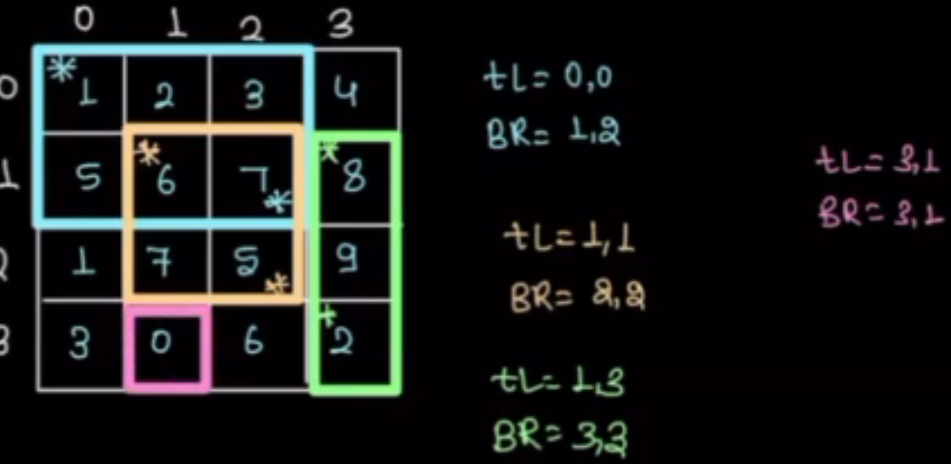 0 1 2 3
0 * 1 2 3 4
1 5 * 6 7 * * 8
2 1 7 5 * 9
3 3 0 6 + 2
tL= 0,0
BR= 1,2
tL= 1,1
BR= 2,2
tL= 1,3
BR= 3,3
tL= 3,1
BR= 3,1